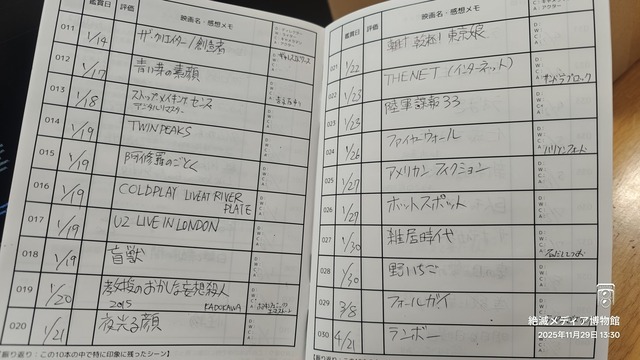 鑑賞日 評価 映画名・感想メモ
011 1/14 ザ・クリエイター/創造者
012 1/17 青い芽の素顔
013 1/18 ストップメイキングセンス
デジタルリマスター
014 1/19 TWIN PEAKS
015 1/19 阿修羅のごとく
016 1/19 COLDPLAY LIVE AT RIVER
PLATE
017 1/19 U2 LIVE IN LONDON
018 1/19 盲獣
019 1/20 教授のおかしな妄想殺人
2015 KADOKAWA
020 1/21 夜光る顔
振り返り:この10本の中で特に印象に残ったシーン】
鑑賞日 評価 映画名・感想メモ
021 1/22 東京娘
022 1/22 THE NET (インターネット) サンドラブロック
023 1/23 陸軍諜報33
024 1/26 ファイヤーウォール ハリソンフォード
025 1/27 アメリカンフィクション
026 1/27 ホットスポット
027 1/30 雑居時代
028 1/30 野いちご
029 3/8 フォールガイ
030 4/21 ランボー
絶滅メディア博物館
2025年11月29日 13:30